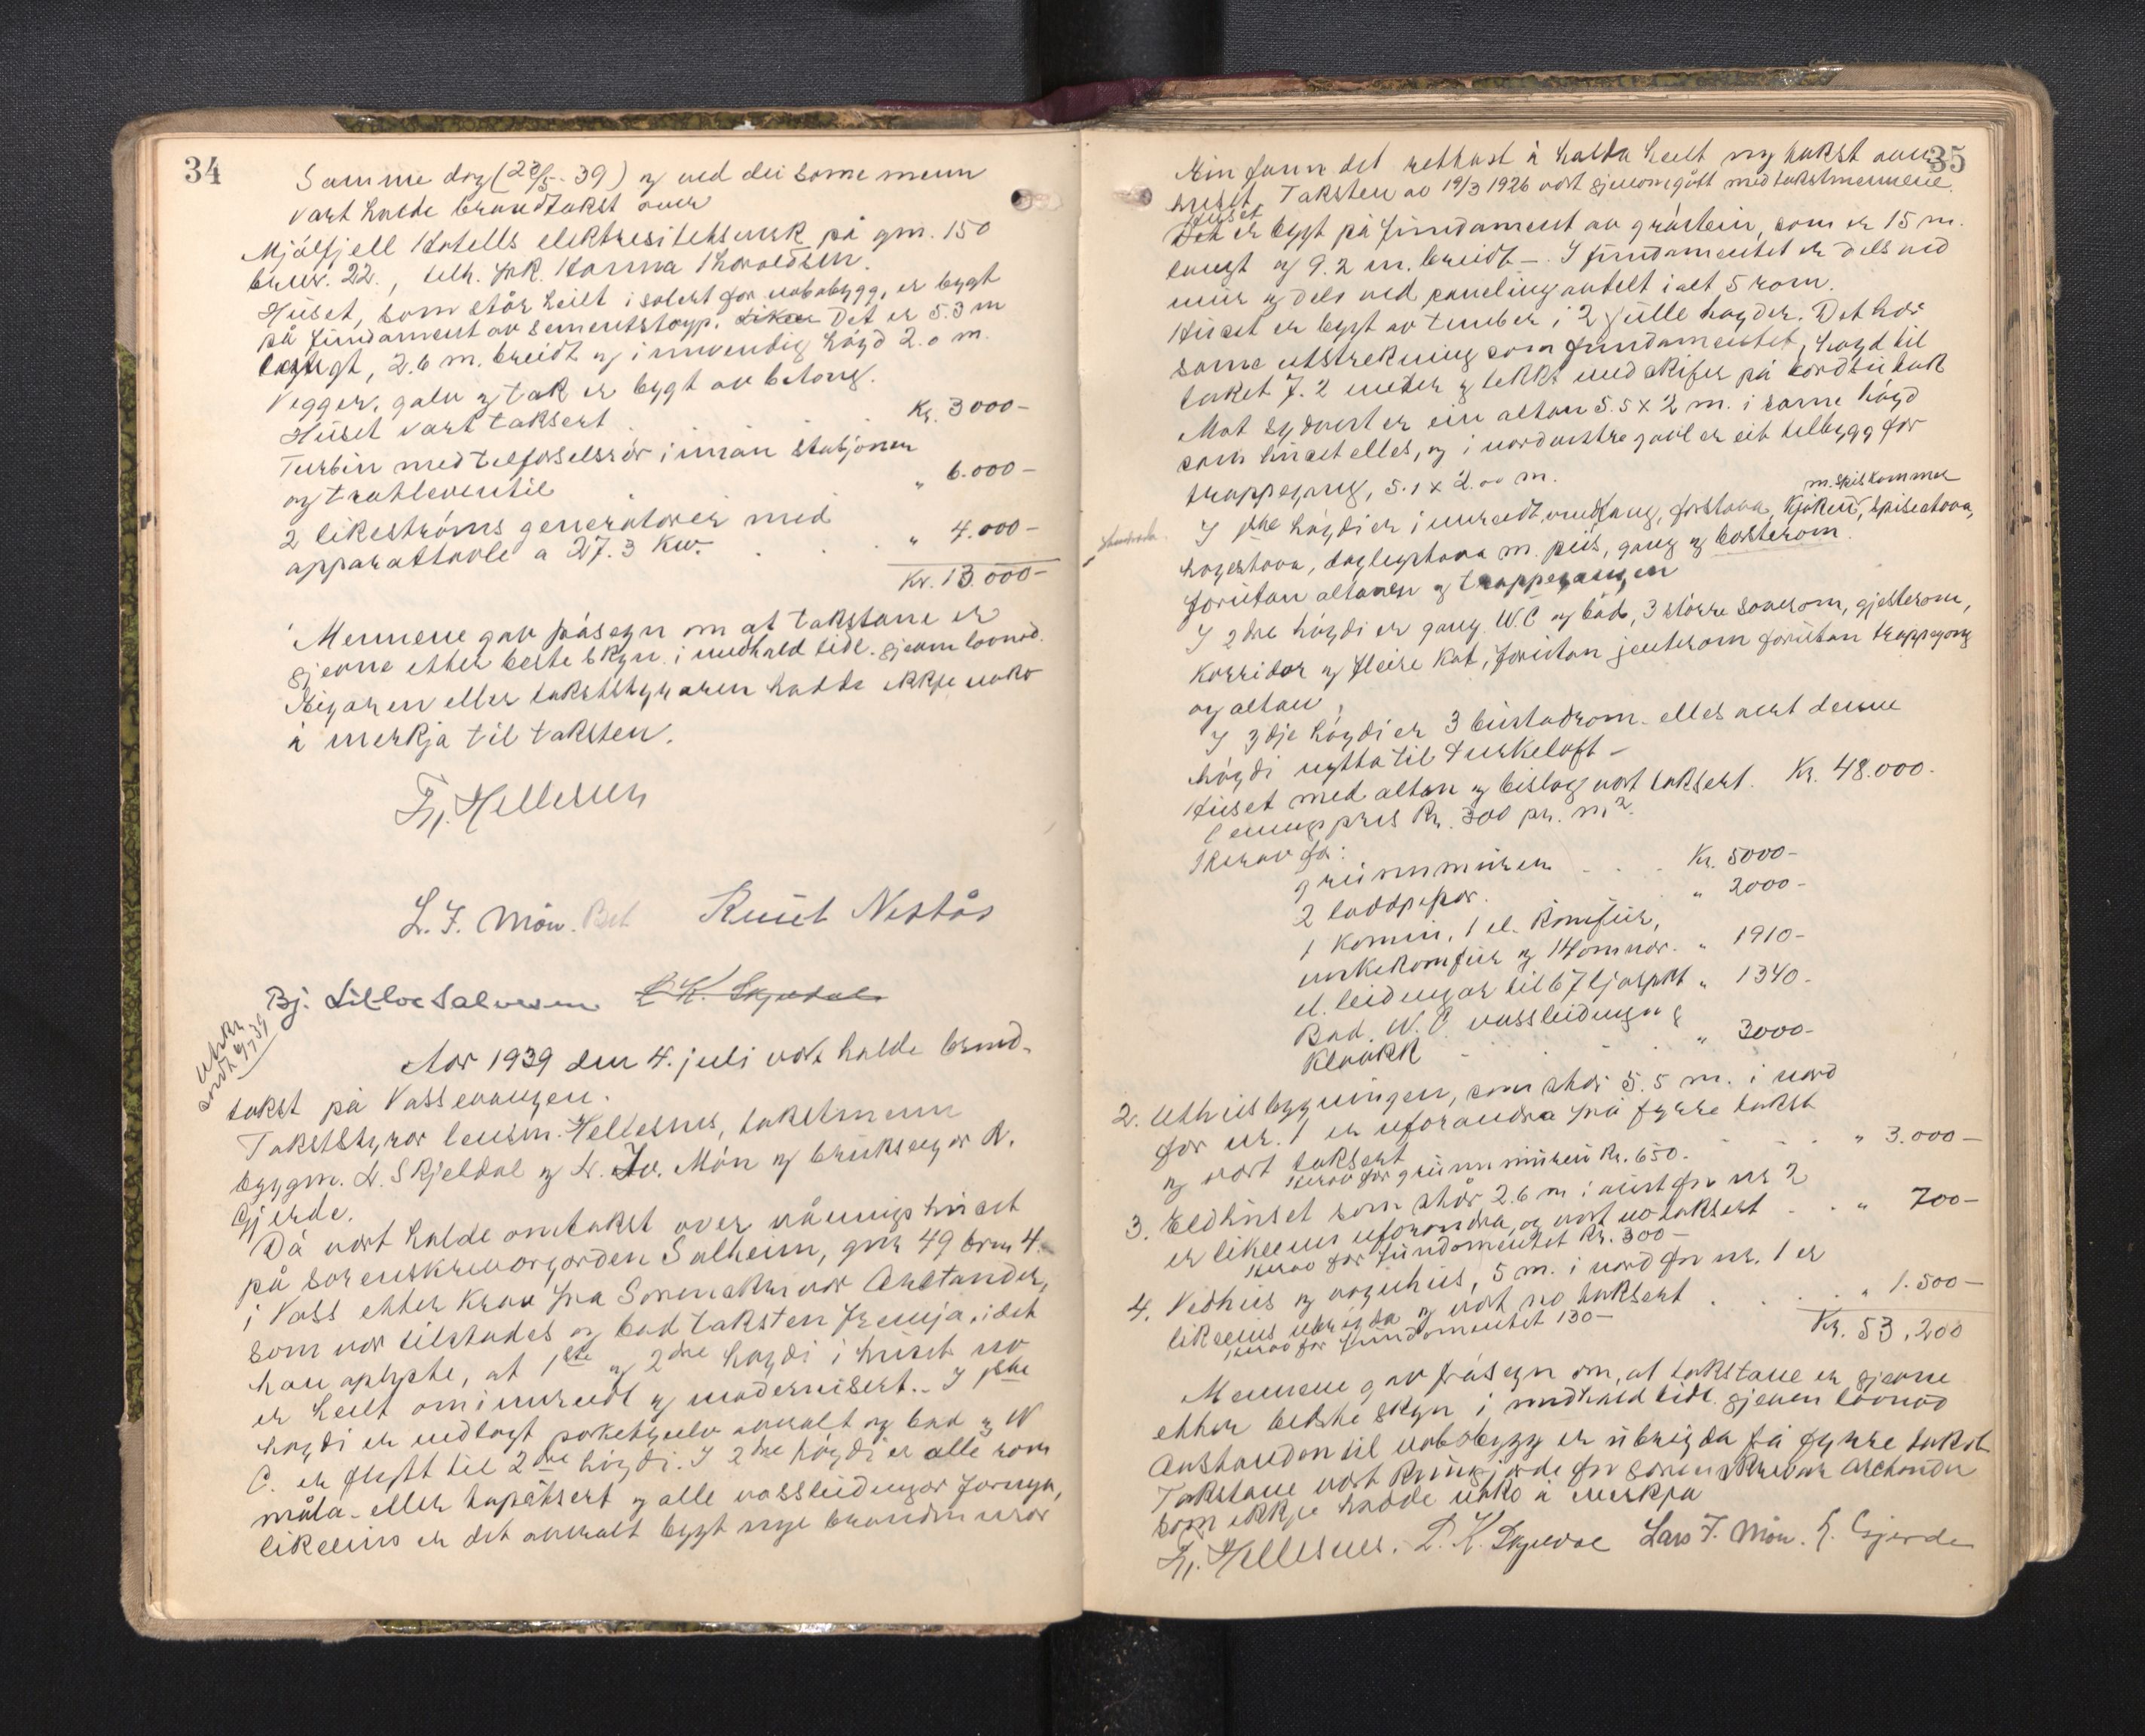 34
Samme dag (23/5-39) og ved dei same menn
vart halde brandtakst over
Mjølfjell Hotells elektresitetsverk på gnr. 150
brnr. 22., tilh. frk. Hanna Thoraldsen.
Huset, som står heilt isolert for nabobygg, er bygt
på fundament av sementstøyp. Det er 5.3 m
langt, 2.6 m. breidt og innvendig høgd 2.0 m.
Vegger, golv og tak er bygt av betong.
Huset vart taksert . . Kr. 3000-
Turbin med tilførselsrør innan stasjonen
og trotleventil . " 6.000-
2 likestrøms generatorer med
apparattavle a 27.3 Kw. . . . " 4.000-
Kr. 13.000-
Mennene gav påsegn om at takstane er
gjevne etter beste skyn i medhald tidl. gjeven lovnad.
Eigaren eller takststyraren hadde ikkje noko
å merkja til taksten.
Fr. Hellesnes
L. F. Møn. Knut Nestås
Bj. Lilloe Salvesen L K. Skjeldal
Utskr.
sndt 6/7 39
Aar 1939 den 4. juli vart halde brand-
takst på Vossevangen.
Takststyrar lensm. Hellesnes, takstmenn
byggm. L. Skjeldal og L. Møn og brukseigar K.
Gjerde.
Då vart halde omtakst over våningshuset
på sorenskrivargarden Solheim, gnr 49 brnr 4.
i Voss etter krav fra Sorenskrivar
som var tilstades og bad taksten fremja, idet
han oplyste, at 1ste og 2dre høgdi i huset no
er heilt ominnreidt og modernisert. I 1ste
høgdi er nedlagt parketgolv overalt og bad og W
C. er flytt til 2dre høgdi. I 2dre høgdi er alle rom
måla eller tapetsert og alle vassleidningar fornya,
likeeins er det overalt bygt nye brandmurar
35
Ein fann det rettast å halda heilt ny takst over
huset. Taksten av 19/3 1926 vart gjenomgått med takstmennene.
Huset
er bygt på fundament av gråstein, som er 15 m.
langt og 9.2 m. breidt -. I fundamentet er dels ved
mur og dels ved paneling avdelt i alt 5 rom.
Huset er bygt av tømber i 2 fulle høgder. Det har
same utstrekning som fundamentet, høgd til
taket 7.2 meter og tekkt med skifer på bordtil tak
Mot sydvest er ein altan 5.5 x 2 m. i same høgd
som huset elles, og i nordvestre gavl er eit tilbygg for
trappegang, 5.1 x 2.00 m.
m. spiskammer
I 1ste høgdi er innreidt, forstova, Kjøken, spisestova,
hagestova, daglegstova m. peis, gang og kosterom.
forutan altanen og trappegangen
I 2dre høgdi er gang W.C og bad, 3 større soverom, gjesterom,
korridor og fleire kot, forutan jenterom forutan trappegang
og altan.
I 3dje høgdi er 3 bustadrom. elles vert denne
høgdi nytta til turkeloft -
Huset med altan og bislag vart taksert. Kr. 48.000.
pris Kr. 300 pr. m2.
Herav for:
grunnmuren . . . Kr. 5000-
2 loddpipor. " 2000-
1 komin, 1 el. komfur,
komfur og 14 omnar. " 1910-
el. leidningar til 67 ljospkt " 1340.
Bad. W. C. vassleidningar &
Kloakk . . . " 3000-
2. Uthusbygningen, som står 5.5 m. i nord
for nr. 1 er uforandra frå fyrre takst
og vart taksert . . . " 3.000-
Herav for grunnmuren Kr. 650.
3. Eldhuset som står 2.6 m i aust for nr 2
er likeeins uforandra, og vart no taksert . . " 700-
Herav for fundamentet Kr. 300-
4. Vedhus og vognhus, 5 m. i nord for nr. 1 er
likeeins ubrigda og vart no taksert . . . " 1.500-
Herav for fundamentet 130-
Kr. 53.200
Mennene gav påsegn om, at takstane er gjevne
etter beste skyn i medhald tidl. gjeven lovnad
Avstanden til nabobygg er ubrigda frå fyrre takst
Takstane vart kunngjorde for sorenskrivar
som ikkje hadde noko å merkja
Fr. Hellesnes. L. K. Skjeldal Lars F. Møn. K. Gjerde